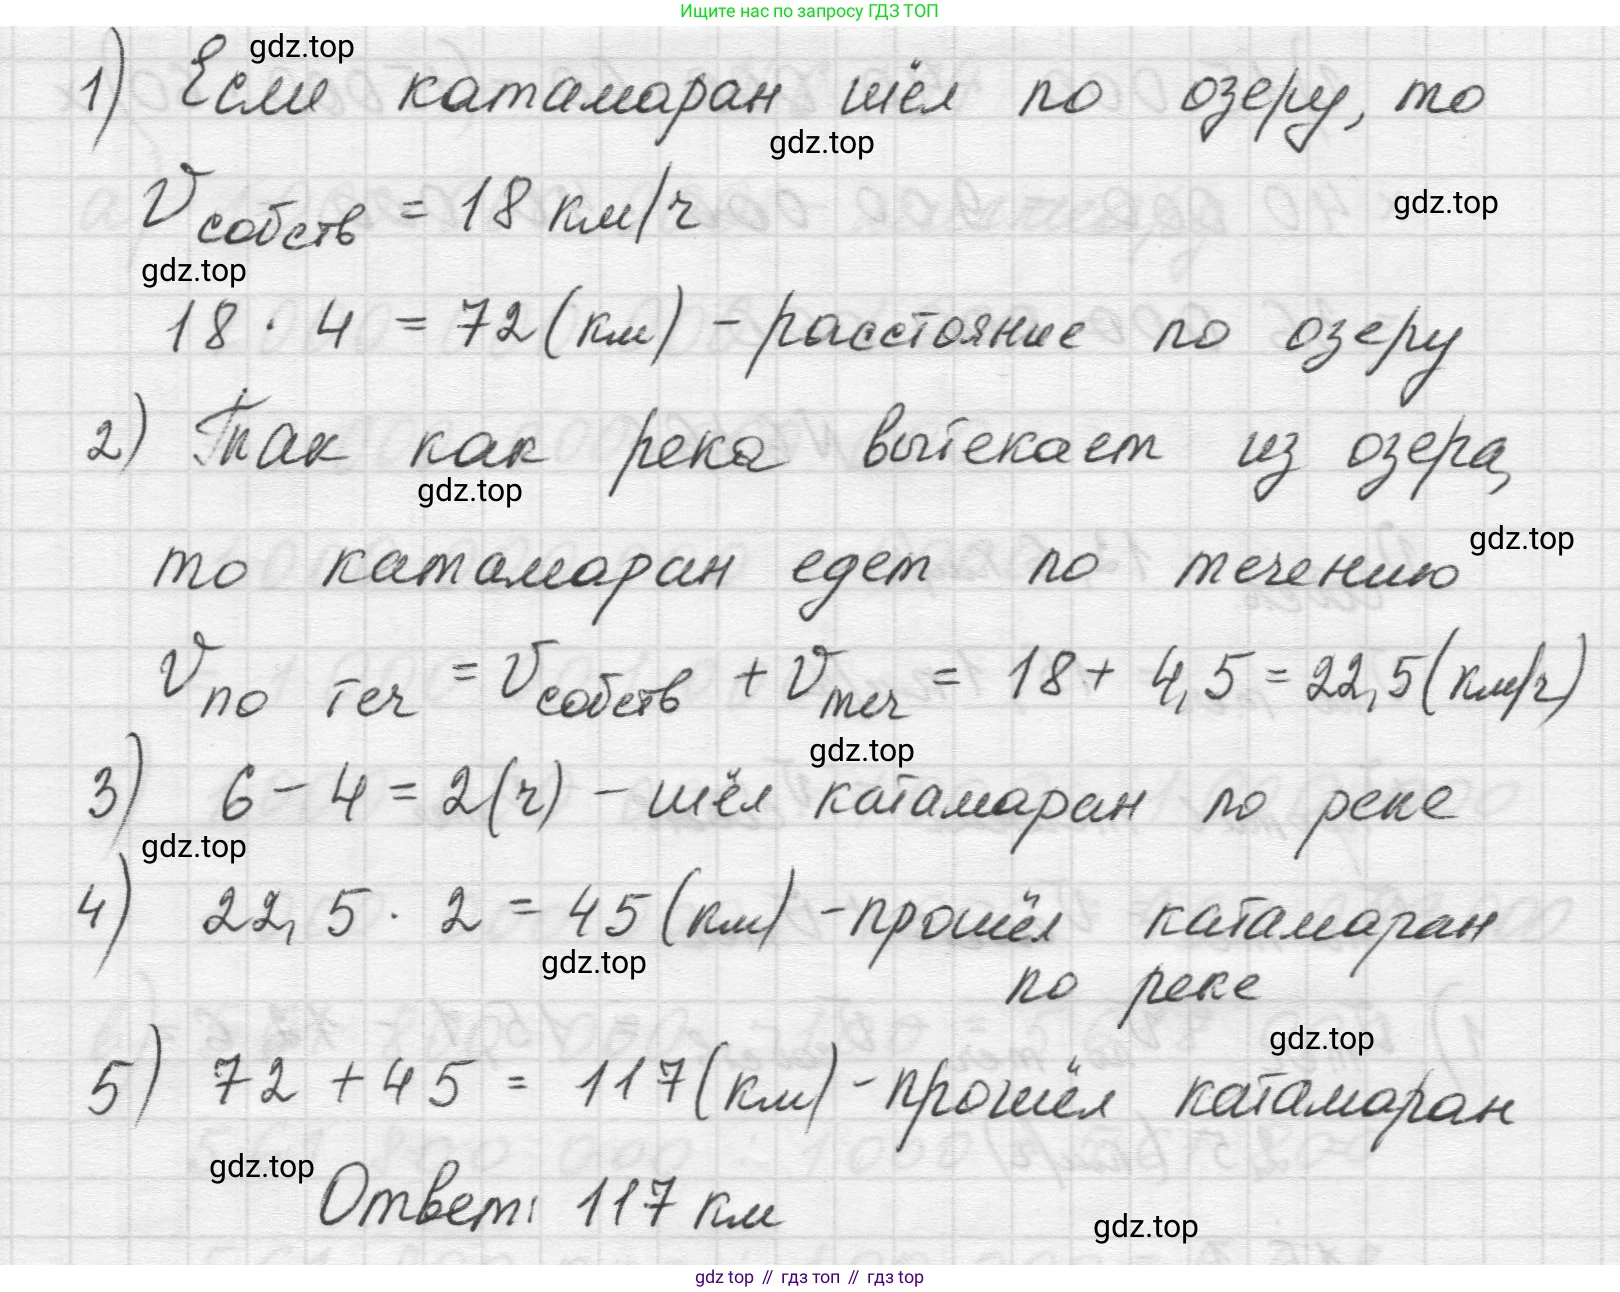 Ищите нас по запросу ГДЗ ТОП
gdz.top
1) Если катамаран шёл по озеру, то
gdz.top
vсобств = 18 км/ч
gdz.top
gdz.top
18 · 4 = 72 (км) - расстояние по озеру
2) Так как река вытекает из озера,
gdz.top
gdz.top
то катамаран едет по течению
vпо теч = vсобств + vтеч = 18 + 4,5 = 22,5 (км/ч)
gdz.top
3) 6 - 4 = 2 (ч) - шёл катамаран по реке
gdz.top
4) 22,5 · 2 = 45 (км) - прошёл катамаран
gdz.top
по реке
gdz.top
5) 72 + 45 = 117 (км) - прошёл катамаран
gdz.top
Ответ: 117 км
gdz.top
gdz top // гдз топ // гдз top